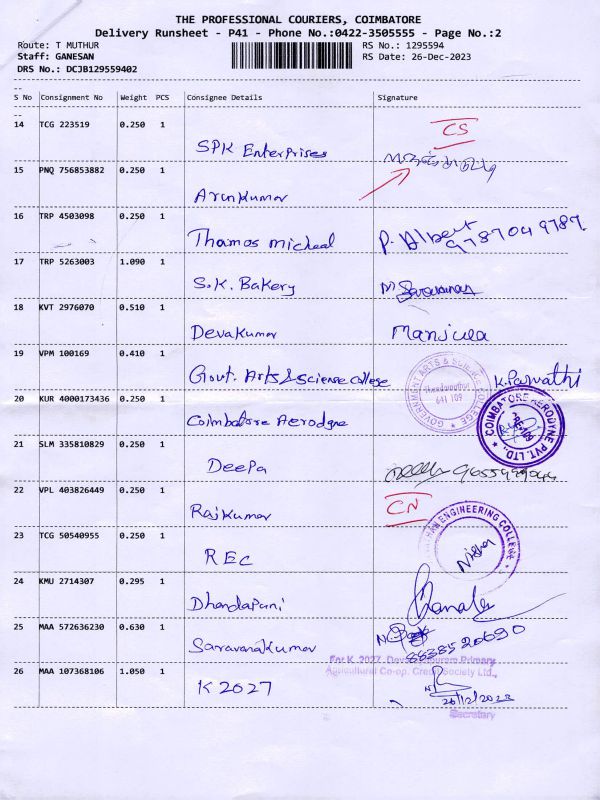 THE PROFESSIONAL COURIERS, COIMBATORE
Delivery Runsheet - P41 - Phone No.:0422-3505555 - Page No.:2
Route: T MUTHUR
RS No.: 1295594
Staff: GANESAN
RS Date: 26-Dec-2023
DRS No.: DCJB129559402
S No Consignment No Weight PCS Consignee Details Signature
14 TCG 223519 0.250 1 SPK Enterprises CS
15 PNQ 756853882 0.250 1 Arunkumar
16 TRP 4503098 0.250 1 Thamas micheal P. Albert 9787049787
17 TRP 5263003 1.090 1 S.K. Bakery M Saravanan
18 KVT 2976070 0.510 1 Devakumar Manjula
19 VPM 100169 0.410 1 Govt. Arts & Science College K. Parvathi
GOVERNMENT ARTS & SCIENCE COLLEGE
Thondamuthur
641 109
20 KUR 4000173436 0.250 1 Coimbatore Aerodyne
COIMBATORE AERODYNE PVT. LTD.,
21 SLM 335810829 0.250 1 Deepa
22 VPL 403826449 0.250 1 Rajkumar CN
23 TCG 50540955 0.250 1 REC
ENGINEERING COLLEGE
24 KMU 2714307 0.295 1 Dhandapani
25 MAA 572636230 0.630 1 Saravanakumar 8838520690
For K. 2027, Primary
Agricultural Co-op. Credit Society Ltd.,
26 MAA 107368106 1.050 1 K 2027
26/12/2023
Secretary